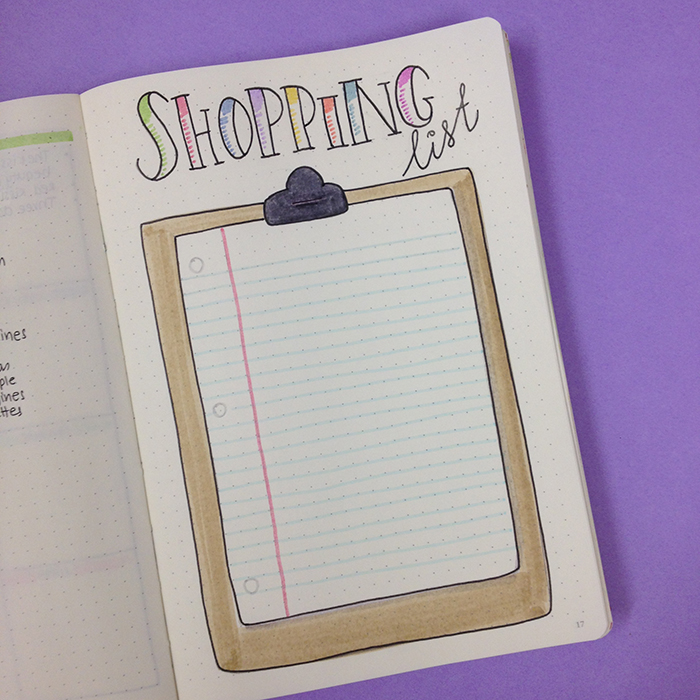 SHOPPING
list
ines
ple
gines
ttes
17